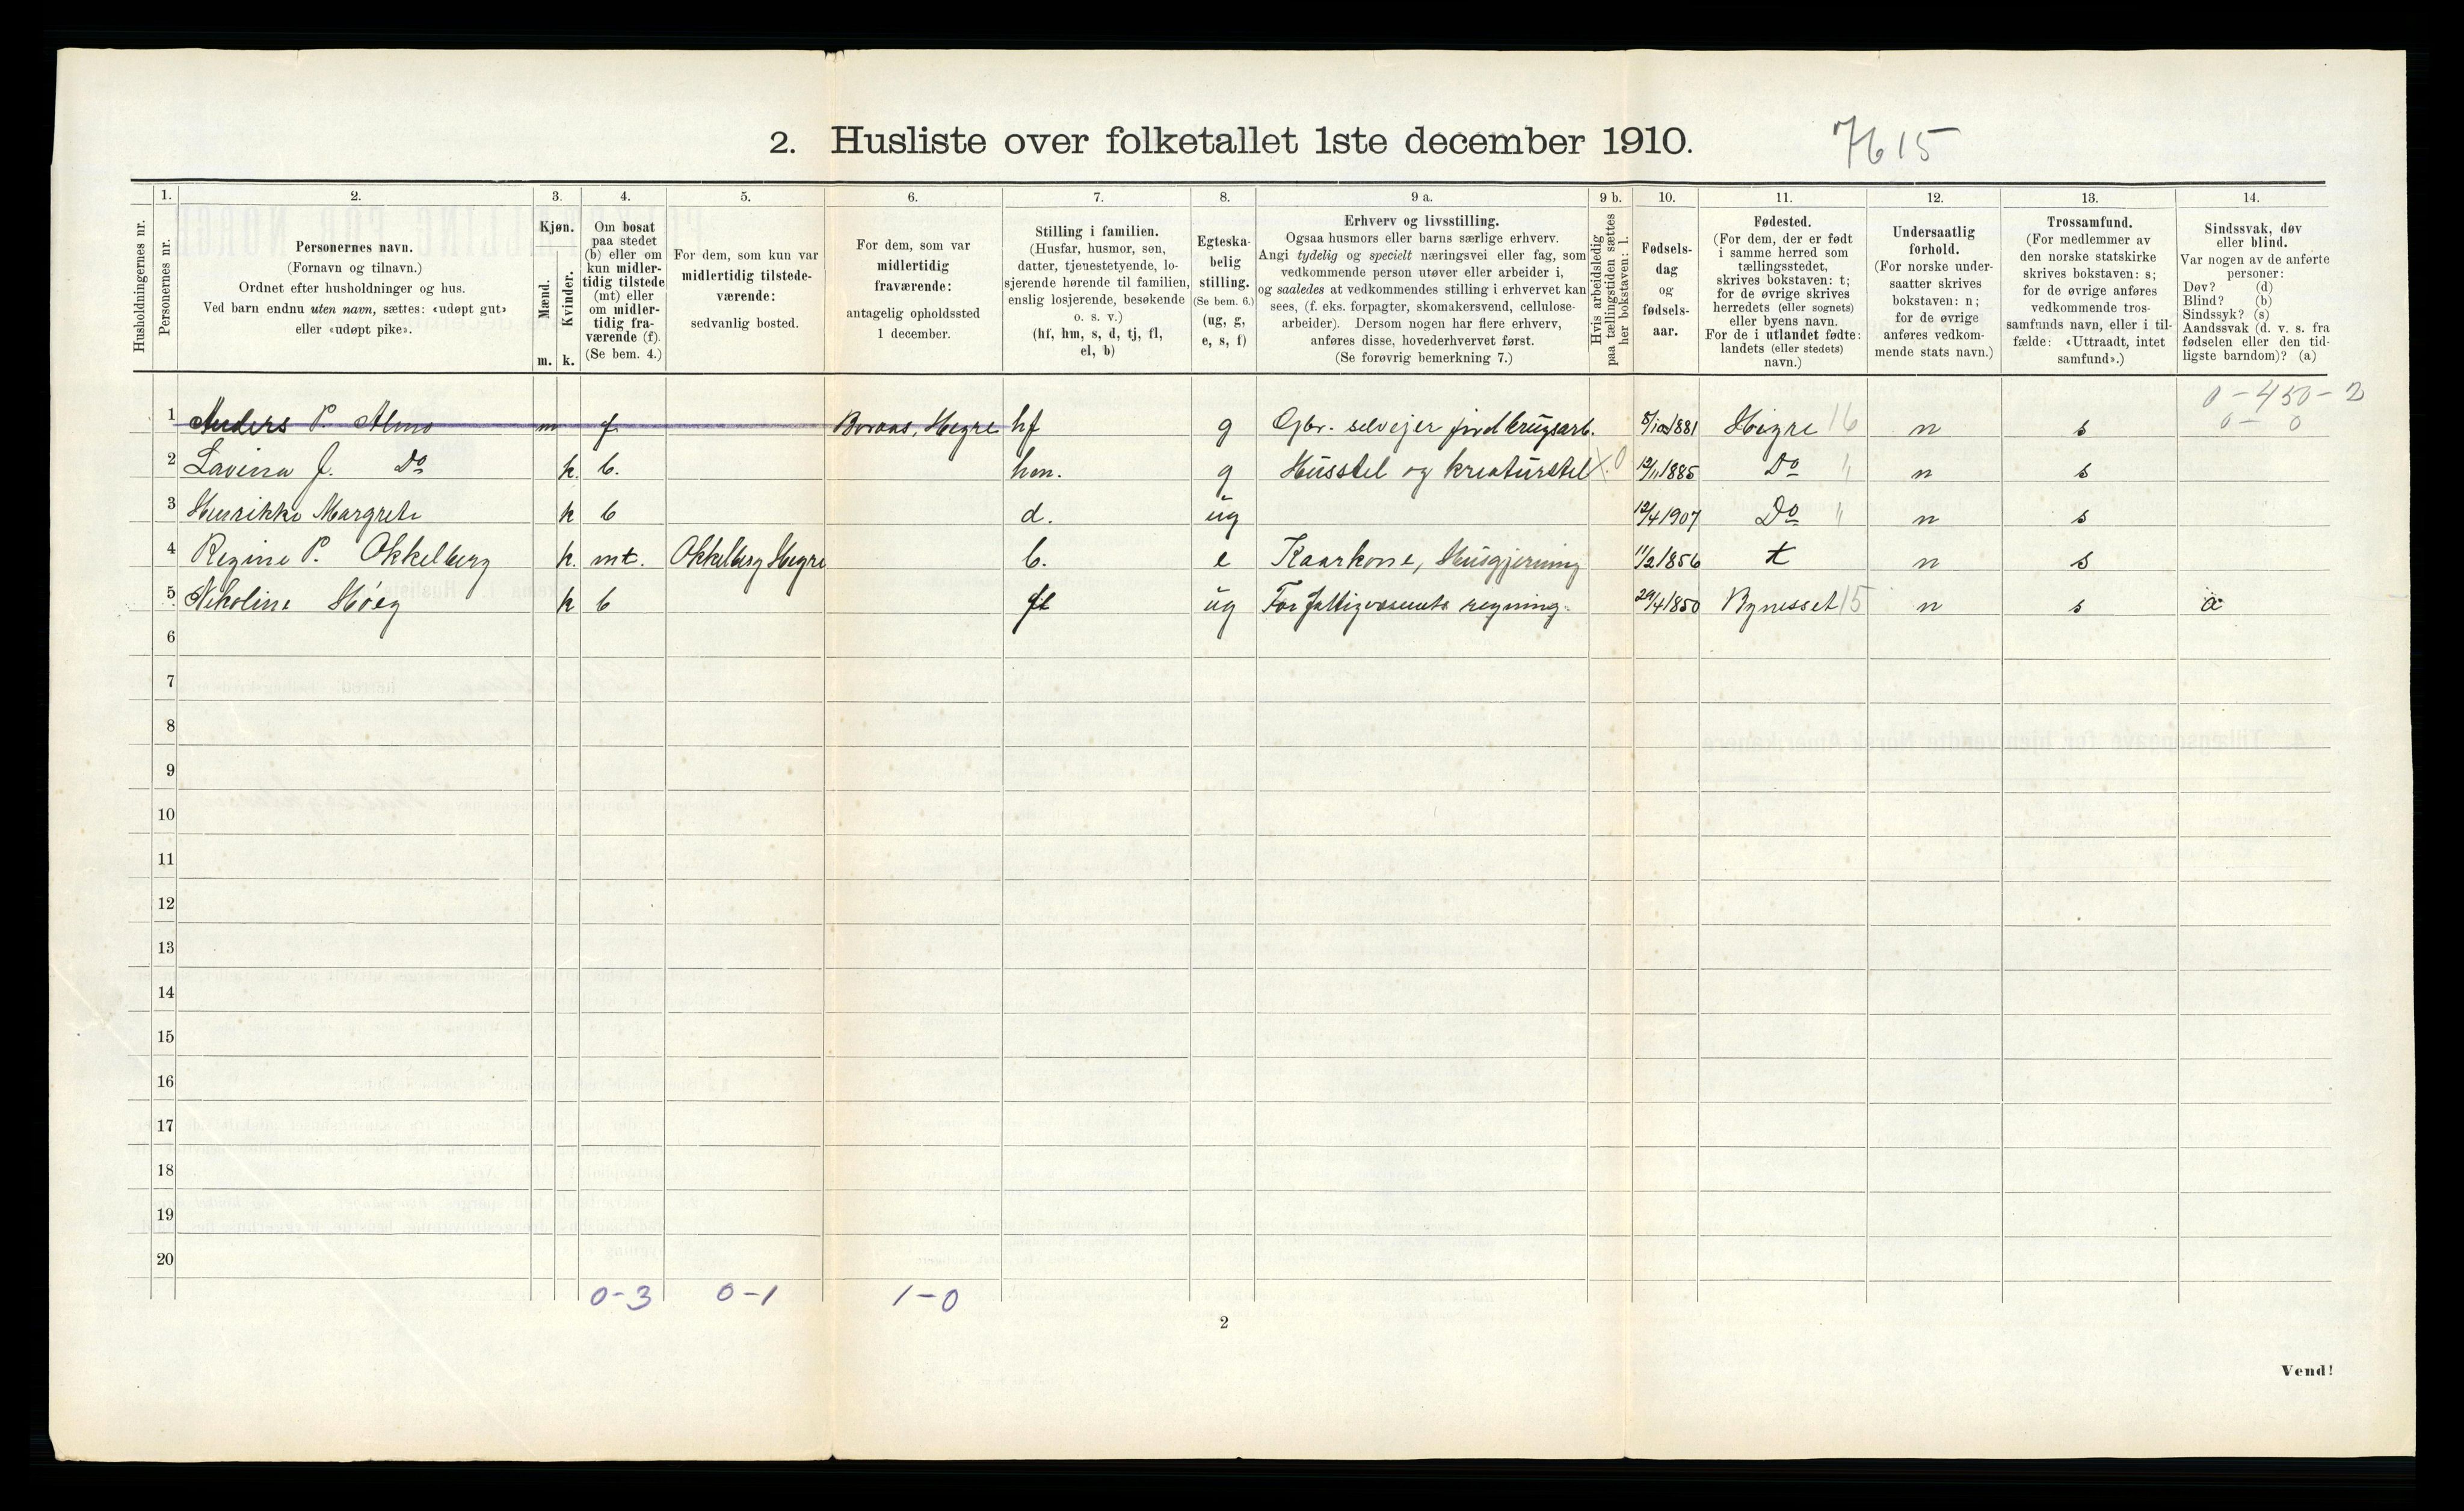 2. Husliste over folketallet 1ste december 1910.
7615
Husholdningernes nr.
1.
Personernes nr.
2.
Personernes navn.
(Fornavn og tilnavn.)
Ordnet efter husholdninger og hus.
Ved barn endnu uten navn, sættes: «udøpt gut»
eller «udøpt pike».
3.
Kjøn.
Mænd.
Kvinder.
m. k.
4.
Om bosat
paa stedet
(b) eller om
kun midler-
tidig tilstede
(mt) eller
om midler-
tidig fra-
værende (f).
(Se bem. 4.)
5.
For dem, som kun var
midlertidig tilstede-
værende:
sedvanlig bosted.
6.
For dem, som var
midlertidig
fraværende:
antagelig opholdssted
1 december.
7.
Stilling i familien.
(Husfar, husmor, søn,
datter, tjenestetyende, lo-
sjerende hørende til familien,
enslig losjerende, besøkende
o. s. v.)
(hf, hm, s, d, tj, fl,
el, b)
8.
Egteska-
belig
stilling.
(Se bem. 6.)
(ug, g,
e, s, f)
9 a.
Erhverv og livsstilling.
Ogsaa husmors eller barns særlige erhverv.
Angi tydelig og specielt næringsvei eller fag, som
vedkommende person utøver eller arbeider i,
og saaledes at vedkommendes stilling i erhvervet kan
sees, (f. eks. forpagter, skomakersvend, cellulose-
arbeider). Dersom nogen har flere erhverv,
anføres disse, hovederhvervet først.
(Se forøvrig bemerkning 7.)
9 b.
Hvis arbeidsledig
paa tællingstiden sættes
her bokstaven: l.
10.
Fødsels-
dag
og
fødsels-
aar.
11.
Fødested.
(For dem, der er født
i samme herred som
tællingsstedet,
skrives bokstaven: t;
for de øvrige skrives
herredets (eller sognets)
eller byens navn.
For de i utlandet fødte:
landets (eller stedets)
navn.)
12.
Undersaatlig
forhold.
(For norske under-
saatter skrives
bokstaven: n;
for de øvrige
anføres vedkom-
mende stats navn.)
13.
Trossamfund.
(For medlemmer av
den norske statskirke
skrives bokstaven: s;
for de øvrige anføres
vedkommende tros-
samfunds navn, eller i til-
fælde: «Uttraadt, intet
samfund».)
14.
Sindssvak, døv
eller blind.
Var nogen av de anførte
personer:
Døv? (d)
Blind? (b)
Sindssyk? (s)
Aandssvak (d. v. s. fra
fødselen eller den tid-
ligste barndom)? (a)
0-450-2
0- 0
1 Anders P. Almo m f Boraas, Hegre hf g Gbr. selvejer jordbrugsarb. 5/10 1881 Heigre 16 n s
2 Lavina J. Do k. b. hm. g Husstel og kreaturstel X.0 12/11 1885 Do " n s
3 Henrikke Margrete k b d. ug 12/4 1907 Do " n s
4 Regine P. Okkelberg k. mt. Okkelberg Hegre b. e Kaarkone, Husgjerning 11/2 1856 t n s
5 Nikoline Høeg k b fl ug For fattigvæsenets regning. 29/4 1850 Bynesset 15 n s a
6
7
8
9
10
11
12
13
14
15
16
17
18
19
20
0-3 0-1 1-0
2
Vend!